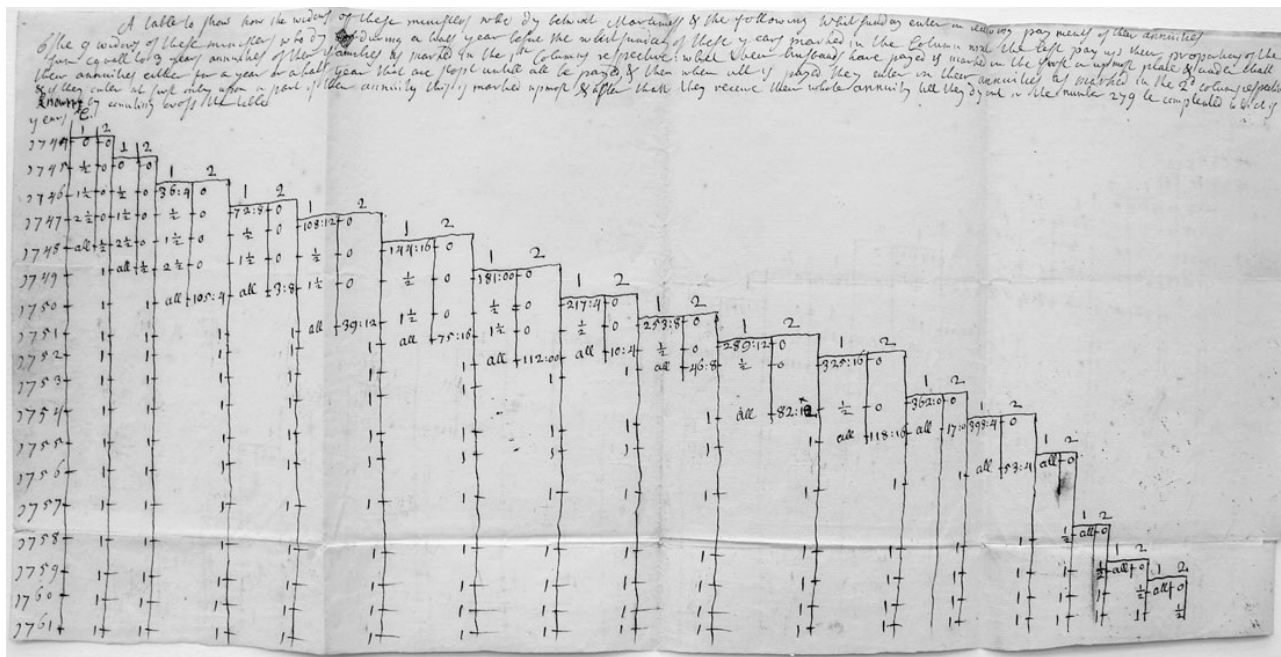 A table to show how the widows of these ministers who dy betwixt Martinmas & the following Whitsunday enter in receiving payments of their annuities
& the widows of these ministers who dy during a half year before the whitsunday of these years marked in the Column next the left pay up their proportion of the
sum equall to 3 years annuities of their families as marked in the 1st Columns respective: what their husbands have payed is marked in the first or upmost place & under
their annuities either for a year or a half year that are stopt untill all be payed & then when all is payed they enter in their annuities as marked in the 2d column respective
& if they enter at first only upon a part of their annuity this is marked upmost & after that they receive their whole annuity till they dy and in the number 279 be compleated
known by counting cross the table
years
1 2
1744 0 0 1 2
1745 ½ 0 0 0 1 2
1746 1½ 0 ½ 0 36:4 0 1 2
1747 2½ 0 1½ 0 ½ 0 72:8 0 1 2
1748 all ½ 2½ 0 1½ 0 ½ 0 108:12 0 1 2
1749 1 all ½ 2½ 0 1½ 0 ½ 0 144:16 0 1 2
1750 1 1 all 105:4 all 3:8 1½ 0 ½ 0 181:00 0 1 2
1751 1 1 1 1 all 39:12 1½ 0 ½ 0 217:4 0 1 2
1752 1 1 1 1 1 all 75:16 1½ 0 ½ 0 253:8 0 1 2
1753 1 1 1 1 1 1 all 112:00 all 10:4 ½ 0 289:12 0 1 2
1754 1 1 1 1 1 1 1 1 all 46:8 ½ 0 325:16 0 1 2
1755 1 1 1 1 1 1 1 1 1 all 82:12 ½ 0 362:0 0 1 2
1756 1 1 1 1 1 1 1 1 1 1 all 118:16 all 17:0 398:4 0 1 2
1757 1 1 1 1 1 1 1 1 1 1 1 1 all 53:4 all 0
1758 1 1 1 1 1 1 1 1 1 1 1 1 1 ½ all 0 1 2
1759 1 1 1 1 1 1 1 1 1 1 1 1 1 1 ½ all 0 1 2
1760 1 1 1 1 1 1 1 1 1 1 1 1 1 1 1 ½ all 0
1761 1 1 1 1 1 1 1 1 1 1 1 1 1 1 1 1 ½